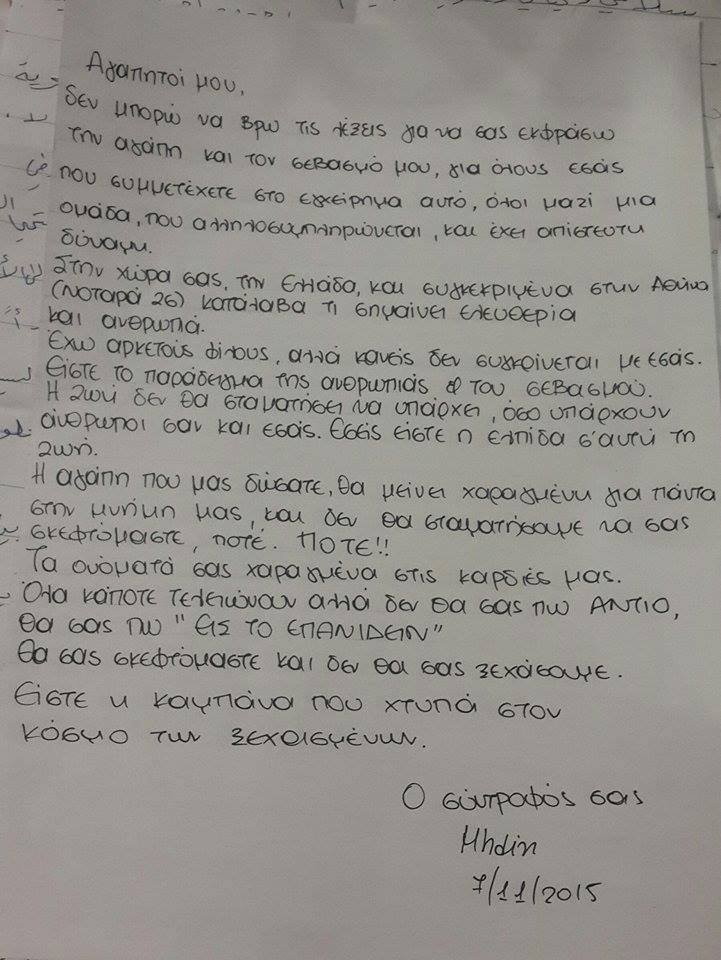 Αγαπητοί μου,
δεν μπορώ να βρω τις λέξεις για να σας εκφράσω
την αγάπη και τον σεβασμό μου, για όλους εσάς
που συμμετέχετε στο εγχείρημα αυτό, όλοι μαζί μια
ομάδα, που αλληλοσυμπληρώνεται, και έχει απίστευτη
δύναμη.
Στην χώρα σας, την Ελλάδα, και συγκεκριμένα στην Αθήνα
(Νοταρά 26) κατάλαβα τι σημαίνει ελευθερία
και ανθρωπιά.
Έχω αρκετούς φίλους, αλλά κανείς δεν συγκρίνεται με εσάς.
Είστε το παράδειγμα της ανθρωπιάς & του σεβασμού.
Η ζωή δεν θα σταματήσει να υπάρχει, όσο υπάρχουν
άνθρωποι σαν και εσάς. Εσείς είστε η ελπίδα σ'αυτή τη
ζωή.
Η αγάπη που μας δώσατε, θα μείνει χαραγμένη για πάντα
στην μνήμη μας, και δεν θα σταματήσουμε να σας
σκεφτόμαστε, ποτέ. ΠΟΤΕ!!
Τα ονόματά σας χαραγμένα στις καρδιές μας.
Όλα κάποτε τελειώνουν αλλά δεν θα σας πω ΑΝΤΙΟ,
θα σας πω "ΕΙΣ ΤΟ ΕΠΑΝΙΔΕΙΝ"
Θα σας σκεφτόμαστε και δεν θα σας ξεχάσουμε.
Είστε η καμπάνα που χτυπά στον
κόσμο των ξεχασμένων.
Ο σύντροφός σας
Mhdin
7/11/2015